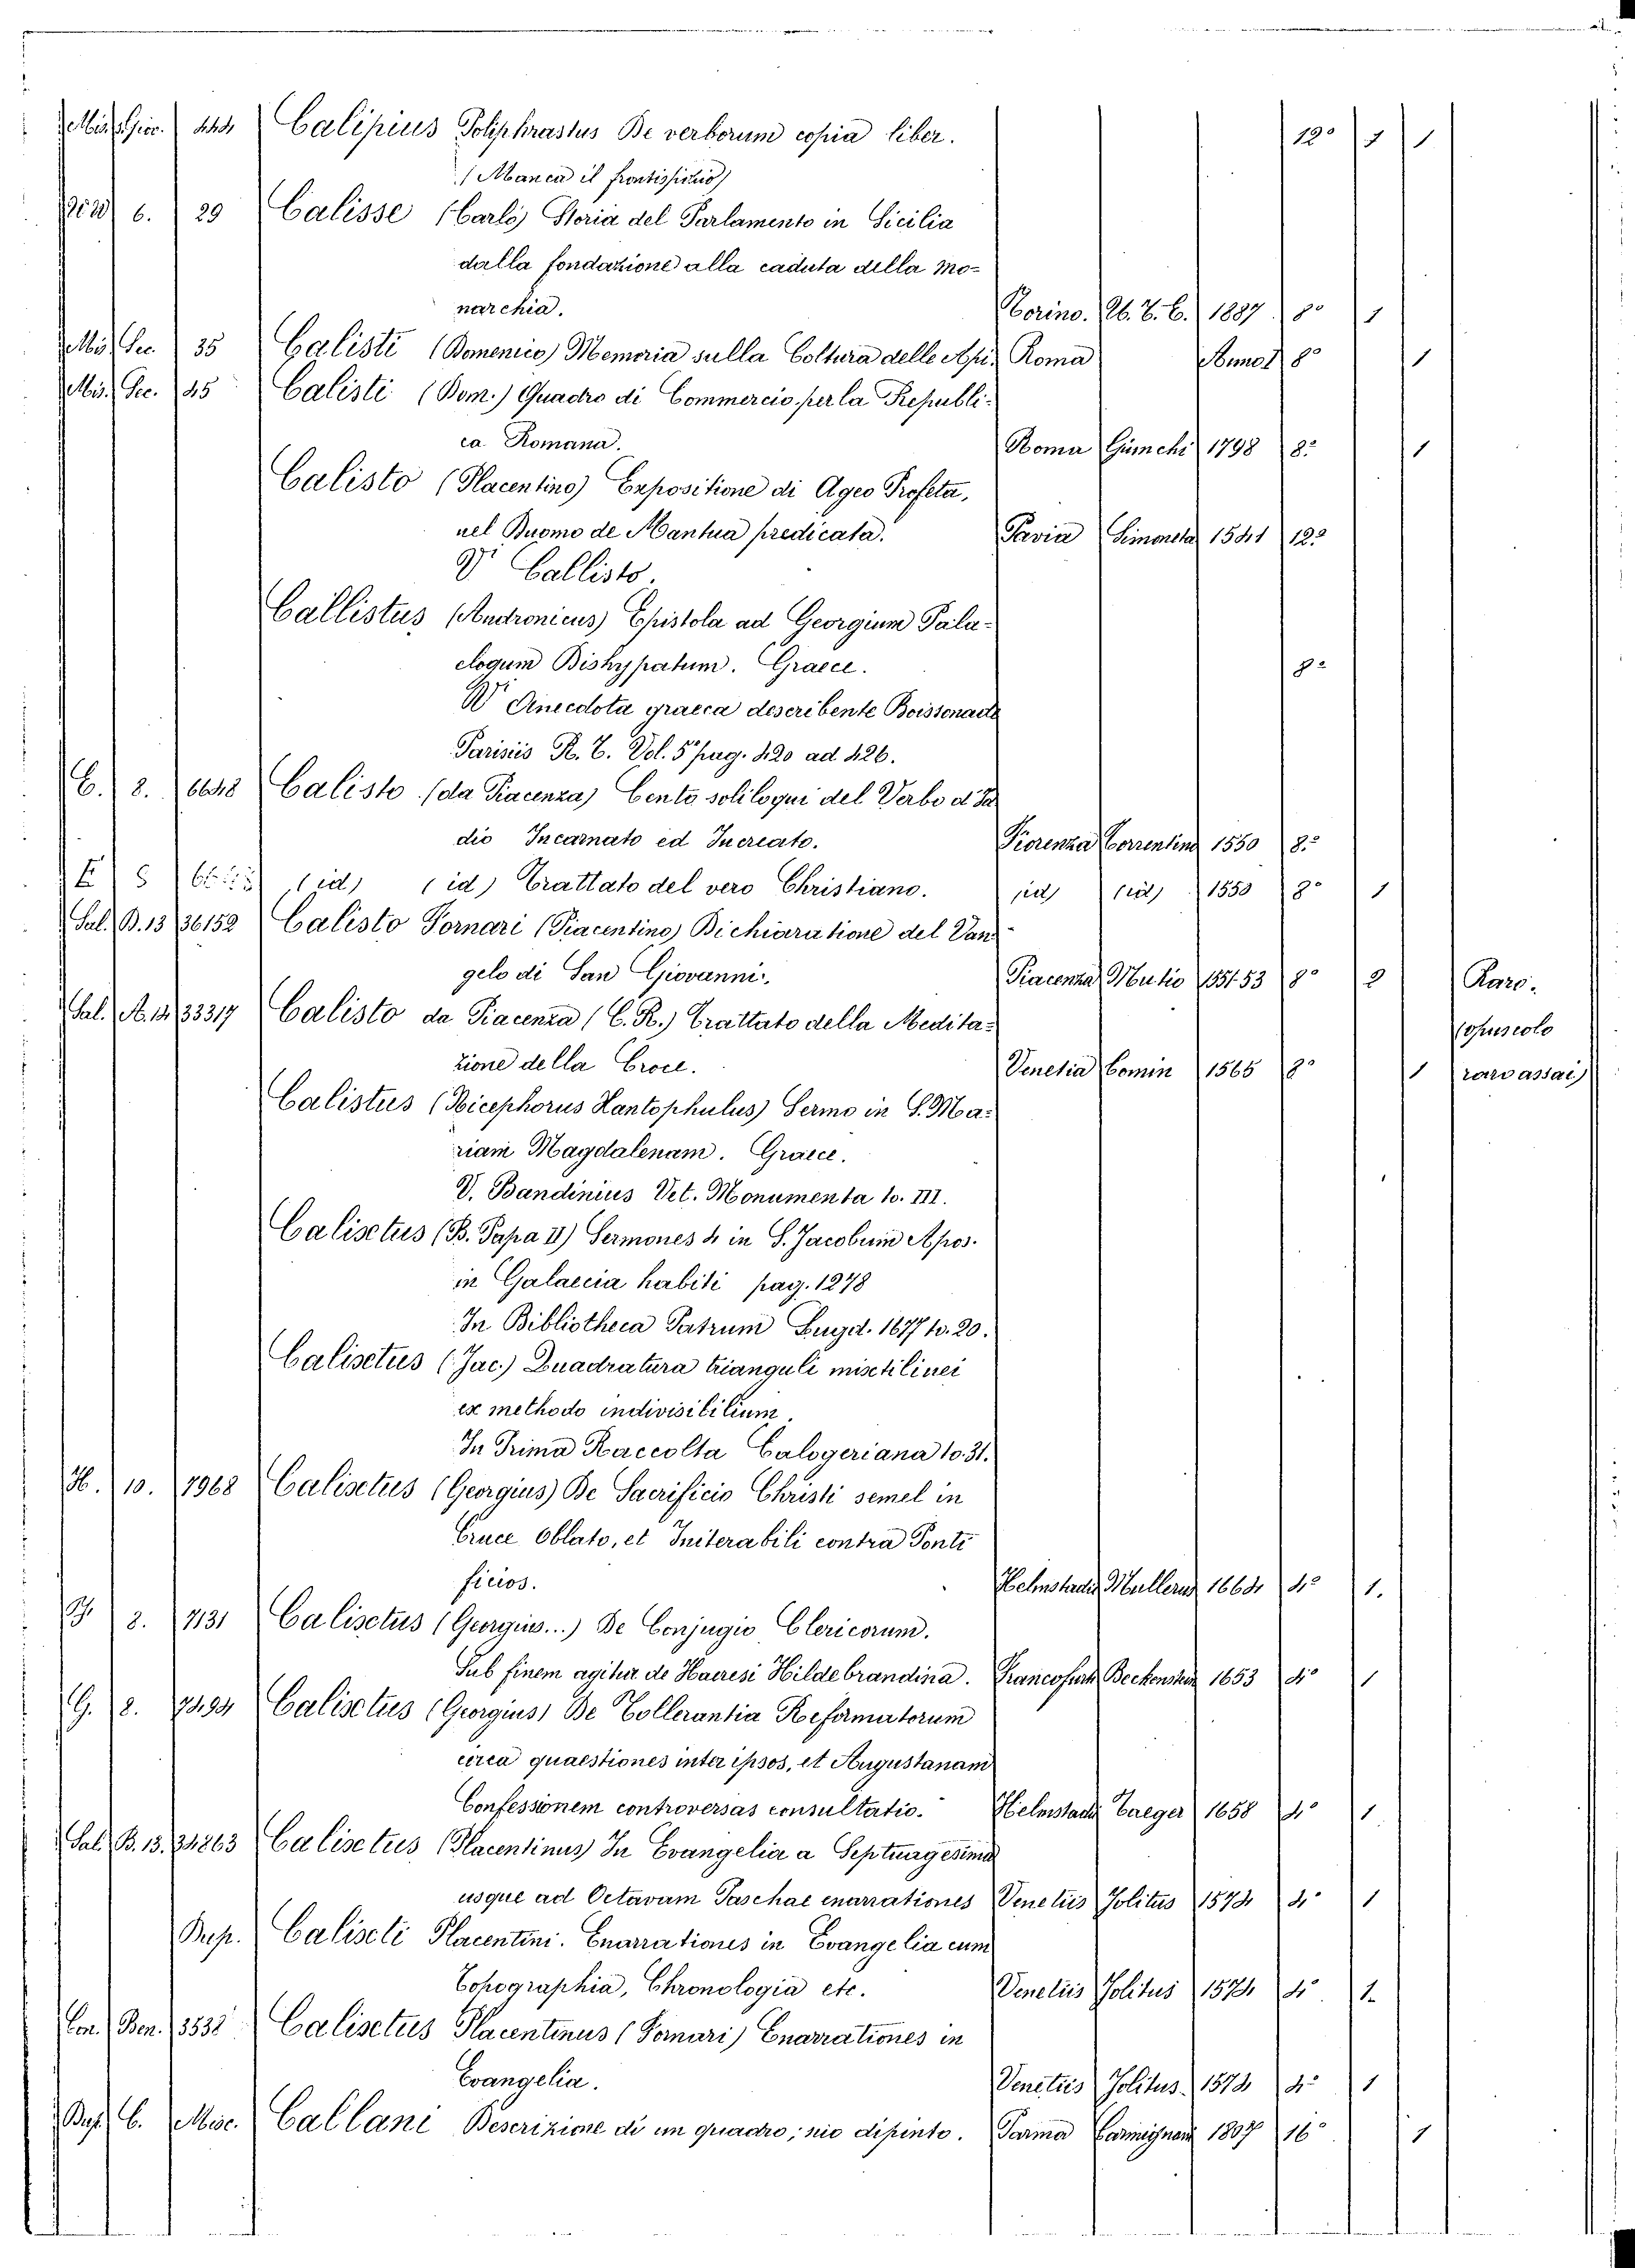 Calipius Poliphrastus De verborum copia liber. 12° 1 1
(Manca il frontispizio)
6. 29 Calisse (Carlo) Storia del Parlamento in Sicilia
dalla fondazione alla caduta della mo-
narchia. Torino. U. T. E. 1887 8° 1
Mis. Sec. 35 Calisti (Domenico) Memoria sulla Coltura delle Api. Roma 8° 1
Mis. Sec. 45 Calisti (Dom.) Quadro di Commercio per la Republi-
ca Romana. Roma 1798 8° 1
Calisto (Placentino) Expositione di Ageo Profeta,
nel Duomo de Mantua predicata. Pavia Simoneta 1541 12°
Vi Callisto.
Callistus (Andronicus) Epistola ad Georgium Pala-
elogum Dishypatum. Graece. 8°
Vi Anecdota graeca describente Boissonade
Parisiis R. T. Vol. 5° pag. 420 ad 426.
E. 8. 6648 Calisto (da Piacenza) Cento soliloqui del Verbo d'Id
dio Incarnato ed Increato. Fiorenza Torrentino 1550 8°
(id) (id) Trattato del vero Christiano. (id) (id) 1550 8° 1
Sal. B. 13 36152 Calisto Fornari (Piacentino) Dichiaratione del Van-
gelo di San Giovanni. Piacenza Mutio 1551-53 8° 2 Raro.
Sal. A. 14 33317 Calisto da Piacenza (C. R.) Trattato della Medita-
(opuscolo
zione della Croce. Venetia Comin 1565 8° 1 raro assai)
Calistus (Nicephorus Xantophulus) Sermo in S. Ma-
riam Magdalenam. Graece.
V. Bandinius Vet. Monumenta to. III.
Calixtus (B. Papa II) Sermones 4 in S. Jacobum Apos.
in Galaecia habiti pag. 1278
In Bibliotheca Patrum Lugd. 1677 to. 20.
Calixtus (Jac.) Quadratura trianguli mixtilinei
ex methodo indivisibilium.
In Prima Raccolta Calogeriana to 31.
H. 10. 7968 Calixtus (Georgius) De Sacrificio Christi semel in
Cruce Oblato, et Initerabili contra Ponti
ficios. Helmstadii Mullerus 1664 4° 1.
8. 7131 Calixtus (Georgius...) De Conjugio Clericorum.
Sub finem agitur de Haeresi Hildebrandina. Francofurti 1653 4° 1
G. 8. 7494 Calixtus (Georgius) De Tollerantia Reformatorum
circa quaestiones inter ipsos, et Augustanam
Confessionem controversas consultatio. Helmstadii 1658 4° 1
Sal. B. 13. 34863 Calixtus (Placentinus) In Evangelia a Septuagesima
usque ad Octavam Paschae enarrationes Venetiis Jolitus 1574 4° 1
Dup. Calixti Placentini. Enarrationes in Evangelia cum
Topographia, Chronologia etc. Venetiis Jolitus 1574 4° 1.
Con. Ben. 3538 Calixtus Placentinus (Fornari) Enarrationes in
Evangelia. Venetiis Jolitus 1574 4° 1
Dup. C. Misc. Callani Descrizione di un quadro; nio dipinto. Parma Carmignani 1807 16° 1